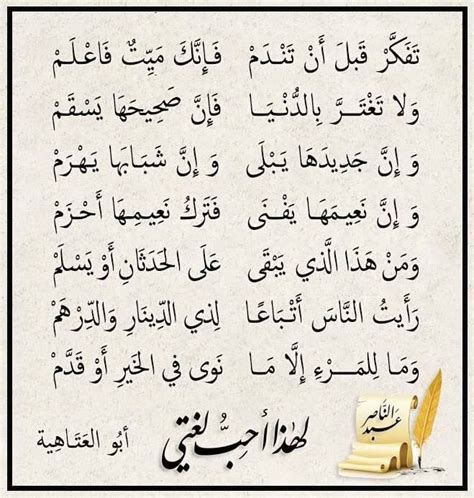 تَفَكَّرْ قَبلَ أَنْ تَنْدَمْ فَإِنَّكَ مَيِّتٌ فَاعْلَمْ
وَلا تَغْتَرَّ بِالدُّنْيَا فَإِنَّ صَحِيحَهَا يَسْقَمْ
وَ إِنَّ جَدِيدَهَا يَبْلَى وَ إِنَّ شَبَابَهَا يَهْرَمْ
وَ إِنَّ نَعِيمَهَا يَفْنَى فَتَركُ نَعِيمِهَا أَحْزَمْ
وَمَنْ هَذَا الَّذي يَبْقَى عَلَى الحَدَثَانِ أَوْ يَسْلَمْ
رَأَيتُ النَّاسَ أَتْبَاعًا لِذي الدِّينَارِ وَالدِّرْهَمْ
وَمَا لِلمَرْءِ إِلَّا مَا نَوى في الخَيرِ أَوْ قَدَّمْ
عَبد النَّاصِر
لهٰذا أحِبُّ لغتي
أبُو العَتَاهِية